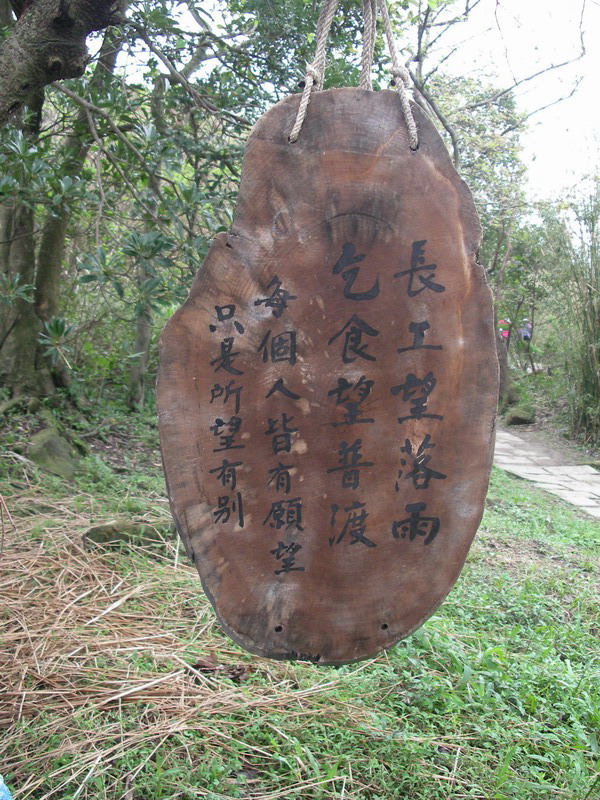 長工望落雨
乞食望普渡
每個人皆有願望
只是所望有別